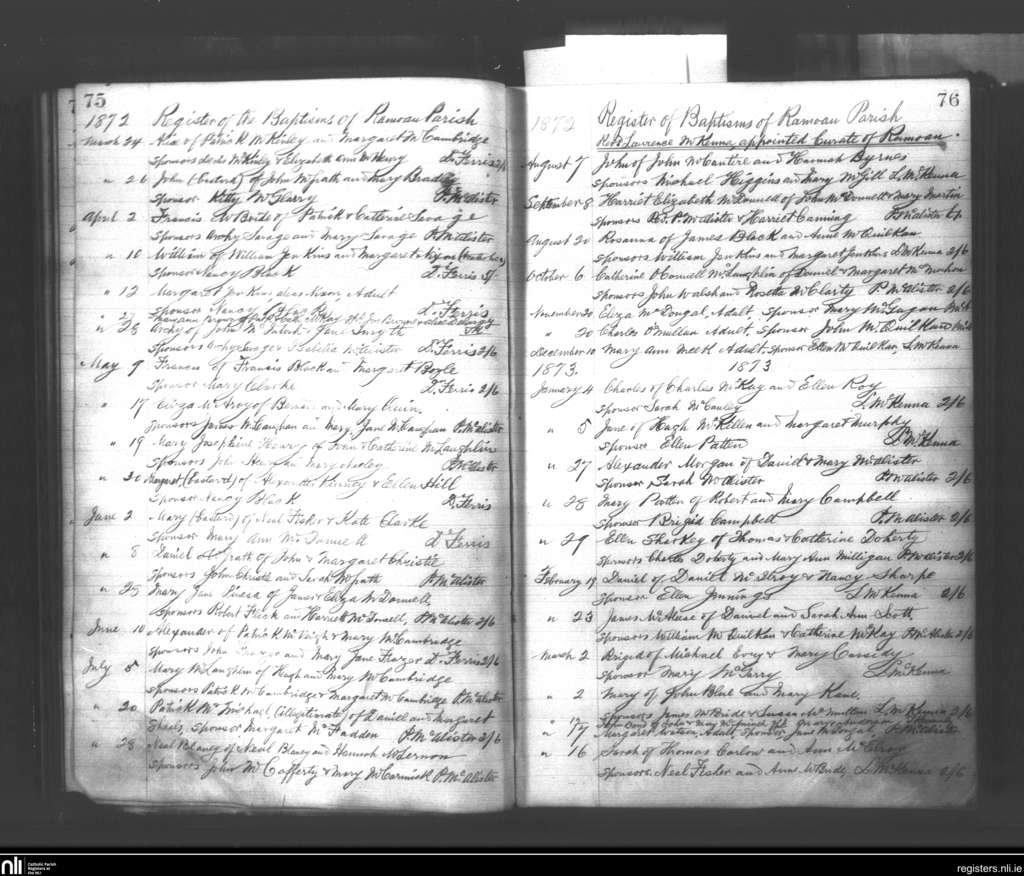 75
1872 Register of the Baptisms of Ramoan Parish
March 24 of Patrick McKinley and Margaret McCambridge
Sponsors McKinley & Elizabeth Ann McHenry D. Ferris 2/6
" 26 John (Bastard) of John McGrath and Mary
Sponsor Kitty McGlarry P. McAlister
April 2 Francis McBride of Patrick & Catherine Savage
Sponsors Archy Savage and Mary Savage P. McAlister
" 10 William of William Jenkins and Margaret
Sponsor Nancy Black D. Ferris
" 12 Margaret Jenkins alias Adult
Sponsor Nancy Black D. Ferris
" 28 Archy of John & Jane Smyth
Sponsors Archy Savage & McAlister D. Ferris 2/6
May 9 Francis of Francis Black and Margaret Boyle
Sponsor Mary Clarke D. Ferris 2/6
" 17 Eliza McAroy of and Mary Quin.
Sponsors James McCaughan and Mary Jane McCaughan P. McAlister
" 19 Mary Josephine Henry of and Catherine McLaughlin
Sponsors John and Mary P. McAlister
" 30 Margaret (Bastard) of Alexander & Ellen Hill
Sponsor Nancy Black D. Ferris
June 2 Mary (Bastard) of Neal Fisher & Kate Clarke
Sponsor Mary Ann McDonnell D. Ferris
" 8 Daniel McGrath of John & Margaret Christie
Sponsors John Christie and Sarah McGrath P. McAlister
" 23 Mary Jane of James & Eliza McDonnell
Sponsors Robert and Harriet McDonnell, P. McAlister 2/6
June 10 Alexander of Patrick McVeigh & Mary McCambridge
Sponsors John and Mary Jane Frazer D. Ferris 2/6
July 5 Mary McLaughlin of Hugh and Mary McCambridge
Sponsors Patrick McCambridge & Margaret McCambridge P. McAlister
" 20 Patrick McMichael, (illegitimate) of Daniel and Margaret
Sheals, Sponsor Margaret McFadden P. McAlister 2/6
" 28 Neal Blaney of Neal Blaney and Hannah McLernon
Sponsors John McCafferty & Mary McCormick P. McAlister
76
1872 Register of Baptisms of Ramoan Parish
Revd. Laurence McKenna appointed Curate of Ramoan.
August 7 John of John McCantire and Hannah Byrnes
Sponsors Michael Higgins and Mary McGill L. McKenna
September 8 Harriet Elizabeth McDonnell of John McDonnell & Mary Martin
Sponsors Rev. P. McAlister & Harriet Canning P. McAlister
August 20 Rosanna of James Black and Anne McQuilkan
Sponsors William Jenkins and Margaret Jenkins L. McKenna 2/6
October 6 Catherine O'Connell McLaughlin of Daniel & Margaret McMahon
Sponsors John Walsh and Rosetta McClarty P. McAlister 2/6
November 20 Eliza McDougal, Adult, Sponsor Mary McLagan
" 20 Charles O'Mullan Adult, Sponsor John McQuilkan
December 10 Mary Ann Meek Adult, Sponsor Ellen McQuilkan, L. McKenna
1873. 1873
January 4 Charles of Charles McKay and Ellen Roy
Sponsor Sarah McCauley L. McKenna 2/6
" 5 Jane of Hugh McKillen and Margaret Murphy
Sponsor Ellen Patten L. McKenna
" 27 Alexander Morgan of David & Mary McAlister
Sponsor, Sarah McAlister P. McAlister 2/6
" 28 Mary Patten of Robert and Mary Campbell
Sponsor Brigid Campbell P. McAlister 2/6
" 29 Ellen Sharkey of Thomas & Catherine Doherty
Sponsors Charles Doherty and Mary Ann Milligan P. McAlister 2/6
February 19 Daniel of Daniel McIlroy & Nancy Sharpe
Sponsor Ellen Jennings L. McKenna 2/6
" 23 James McAleese of Daniel and Sarah Ann Scott
Sponsors William McQuilkan & Catherine McKay P. McAlister 2/6
March 2 Brigid of Michael and Mary Cassidy
Sponsor Mary McGarry L. McKenna
" 2 Mary of John Blue and Mary Kane.
Sponsors James McBride & Susan McMullen L. McKenna 2/6
" 17 Margaret Watson, Adult, Sponsor Jane McDougal, P. McAlister
" 16 Sarah of Thomas Carlow and Ann McElroy
Sponsors. Neal Fisher and Anne McBride L. McKenna 2/6
nli
Catholic Parish
Registers at
the NLI
registers.nli.ie